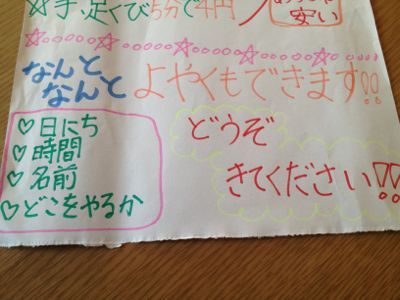 ☆手、足くび5分で4円
安い
なんと
なんと よやくもできます!!
♡日にち
♡時間
♡名前
♡どこをやるか
どうぞ
きてください!!